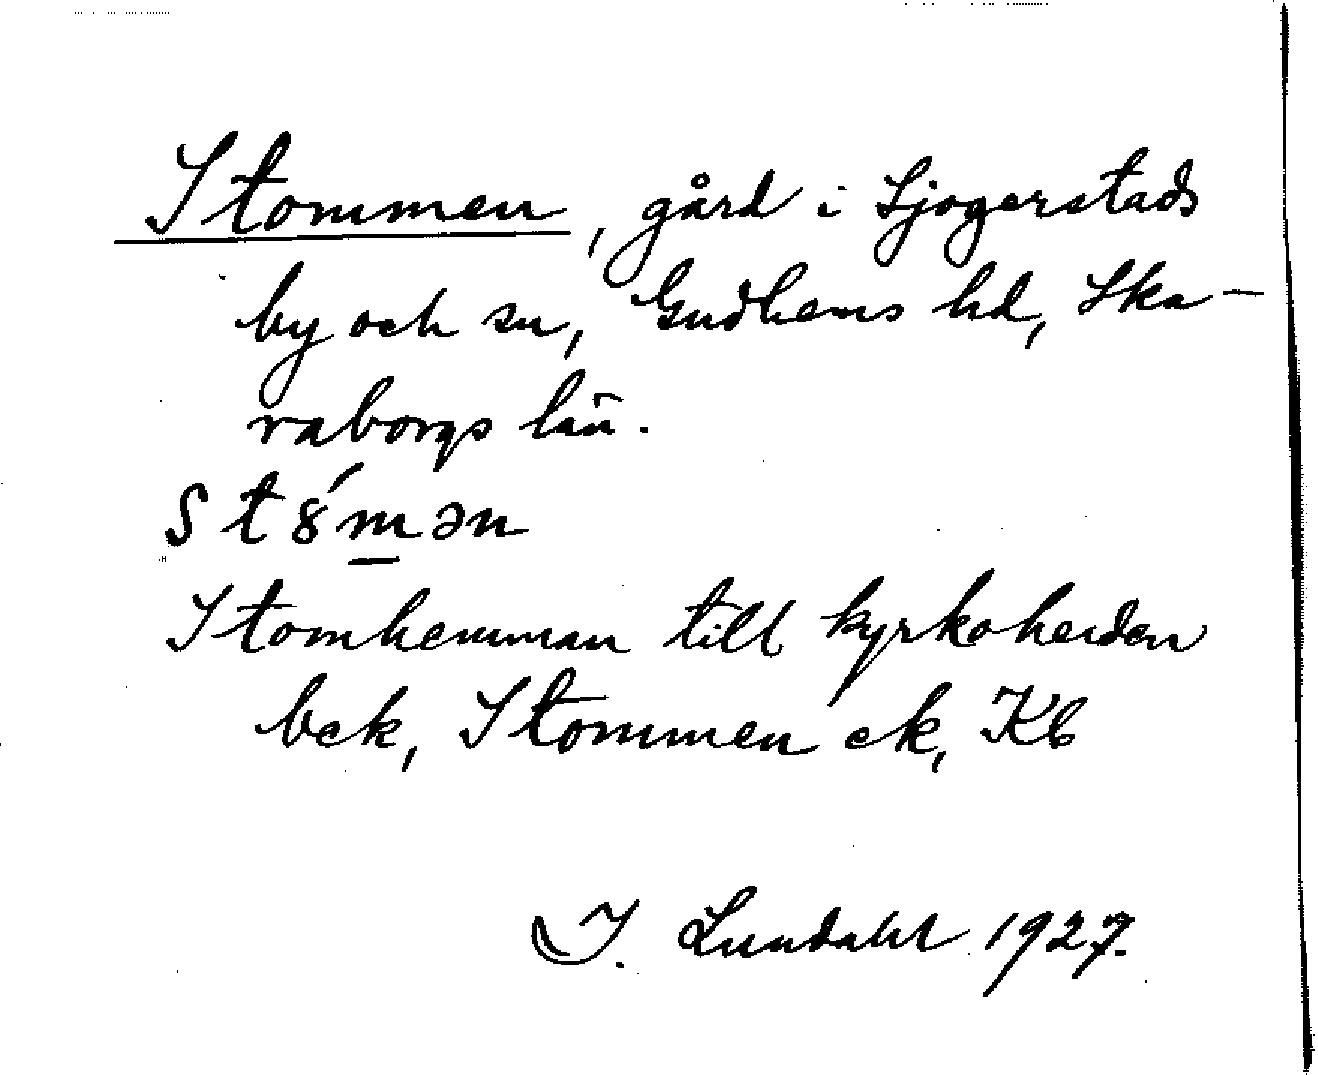 Stommen, gård i Sjogerstads
by och sn, Gudhems hd, Ska-
raborgs län.
st8́mən
Stomhemman till kyrkoherden
bek, Stommen ek, Kb
I. Lundahl 1927.